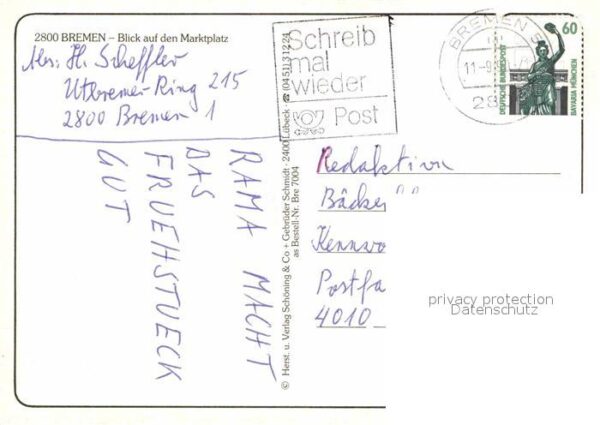 2800 BREMEN – Blick auf den Marktplatz
Abs.: H. Scheffler
Utbremer Ring 215
2800 Bremen 1
RAMA MACHT
DAS
FRUEHSTUECK
GUT
© Herst. u. Verlag Schöning & Co + Gebrüder Schmidt · 2400 Lübeck · ☎ (0451) 31224
as Bestell-Nr. Bre 7004
Schreib
mal
wieder
Post
BREMEN 5
11.-9.
28
60
DEUTSCHE BUNDESPOST
BAVARIA MÜNCHEN
Redaktion
Bäcke
Kennwo
Postfa
4010
privacy protection
Datenschutz